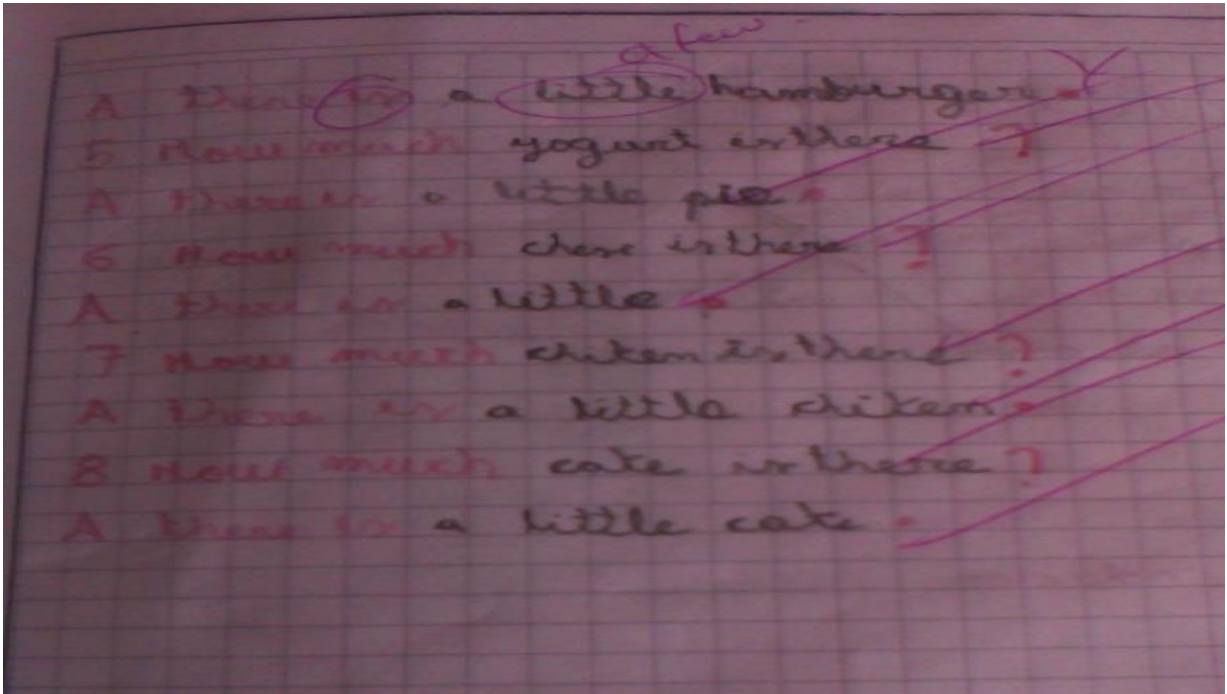 a few
A there is a little hamburger.
5 How much yogurt is there ?
A there is a little pie.
6 How much chese is there ?
A there is a little.
7 How much chiken is there ?
A there is a little chiken.
8 How much cake is there ?
A there is a little cake.